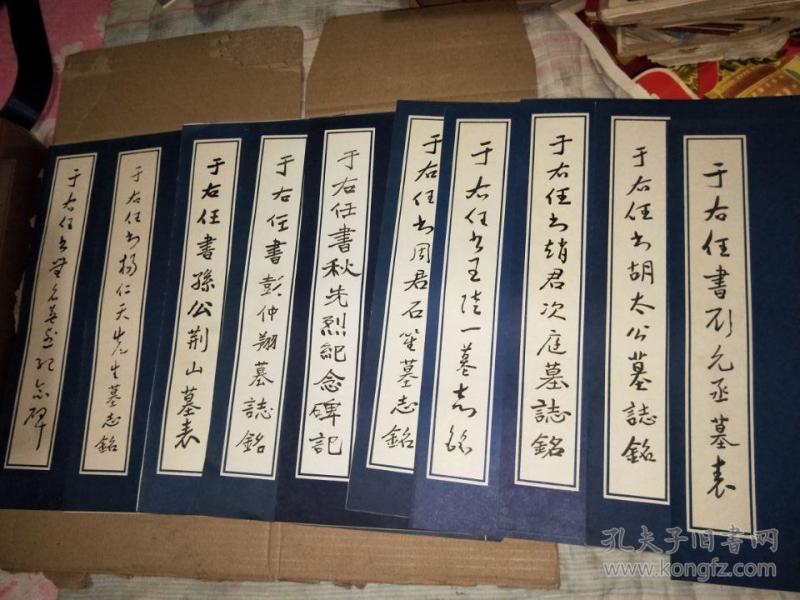 于右任书
纪念碑
于右任书杨仁天先生墓志铭
于右任書孫公荆山墓表
于右任書彭仲翔墓誌銘
于右任書秋先烈紀念碑記
于右任书周君石笙墓志銘
于右任书王陆一墓志铭
于右任书趙君次庭墓誌銘
于右任书胡太公墓誌銘
于右任書彭允丞墓表
孔夫子旧书网
www.kongfz.com